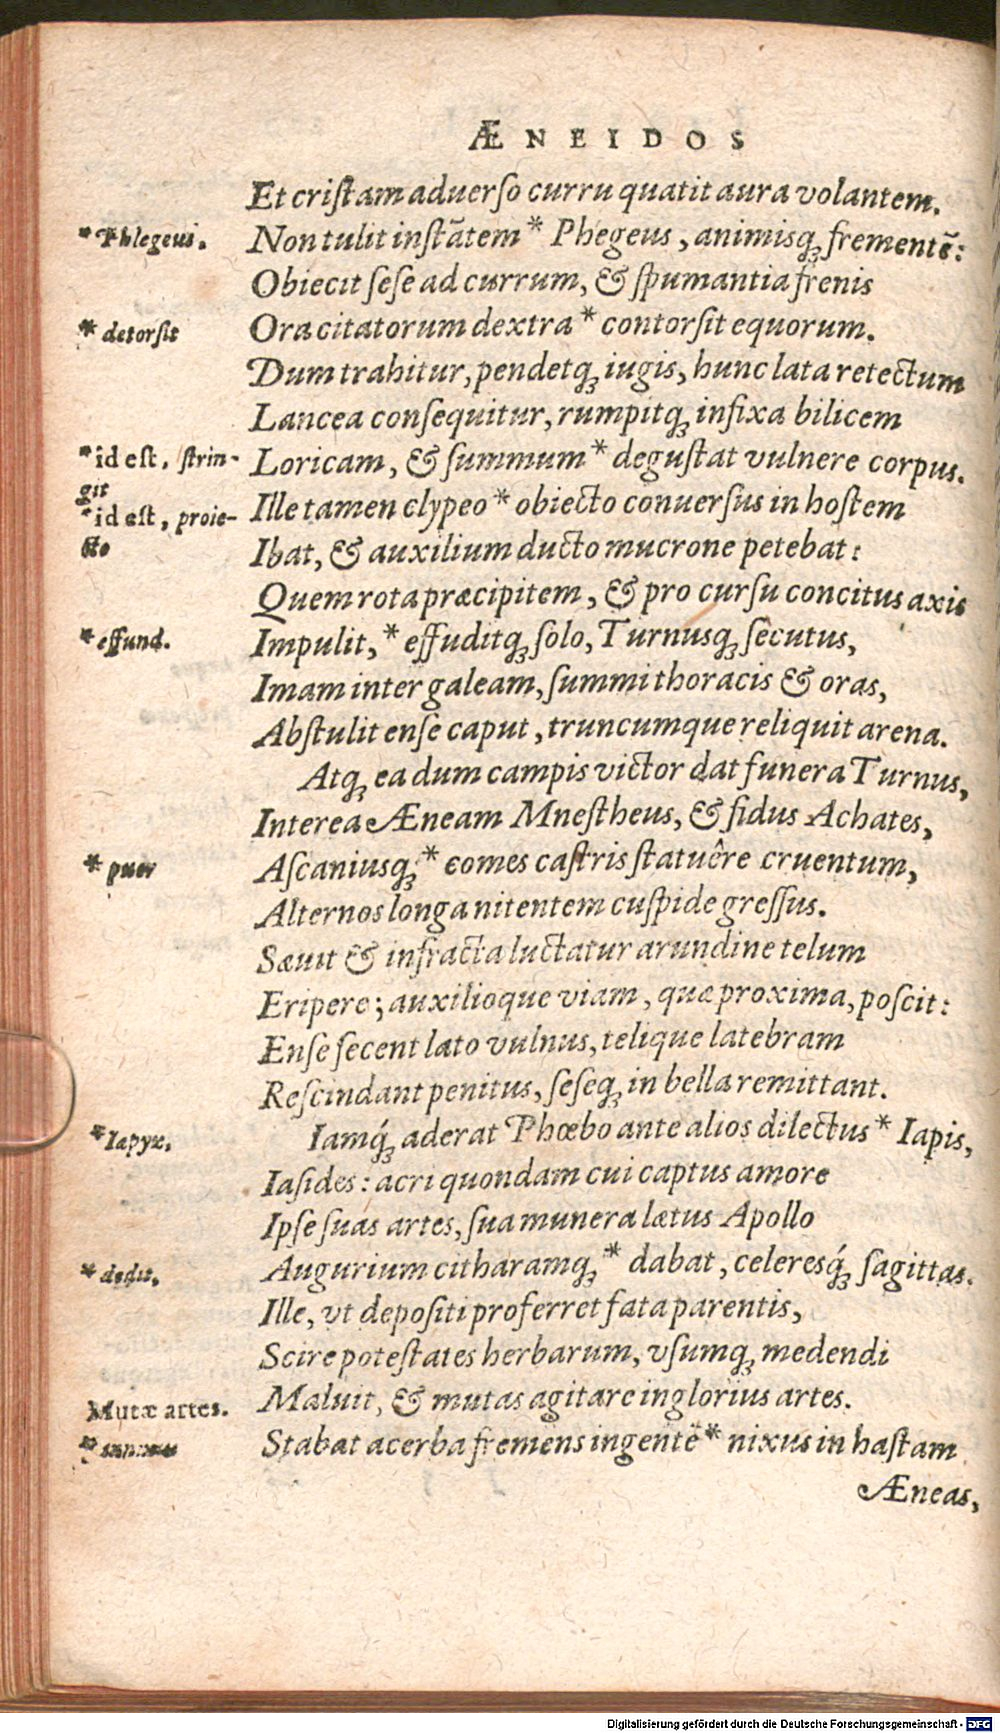 ÆNEIDOS
Et criſtam aduerſo curru quatit aura volantem.
* Phlegeus.
Non tulit inſtãtem * Phegeus, animisq́; frementẽ:
Obiecit ſeſe ad currum, & ſpumantia frenis
* detorſit
Ora citatorum dextra * contorſit equorum.
Dum trahitur, pendetq; iugis, hunc lata retectum
Lancea conſequitur, rumpitq; infixa bilicem
* id eſt, ſtrin-
Loricam, & ſummum * deguſtat vulnere corpus.
git
Ille tamen clypeo * obiecto conuerſus in hoſtem
* id eſt, proie-
cto
Ibat, & auxilium ducto mucrone petebat:
Quem rota præcipitem, & pro curſu concitus axis
* effund.
Impulit, * effuditq; ſolo, Turnusq; ſecutus,
Imam inter galeam, ſummi thoracis & oras,
Abſtulit enſe caput, truncumque reliquit arena.
Atq; ea dum campis victor dat funera Turnus,
Interea Æneam Mneſtheus, & fidus Achates,
* puer
Aſcaniusq; * comes caſtris ſtatuêre cruentum,
Alternos longa nitentem cuſpide greſſus.
Sæuit & infracta luctatur arundine telum
Eripere; auxilioque viam, quæ proxima, poſcit:
Enſe ſecent lato vulnus, telique latebram
Reſcindant penitus, ſeſeq; in bella remittant.
* Iapyx,
Iamq́; aderat Phœbo ante alios dilectus * Iapis,
Iaſides: acri quondam cui captus amore
Ipſe ſuas artes, ſua munera lætus Apollo
* dedit,
Augurium citharamq; * dabat, celeresq́; ſagittas.
Ille, vt depoſiti proferret fata parentis,
Scire poteſtates herbarum, vſumq; medendi
Mutæ artes.
Maluit, & mutas agitare inglorius artes.
*
Stabat acerba fremens ingentẽ * nixus in haſtam
Æneas,
Digitalisierung gefördert durch die Deutsche Forschungsgemeinschaft - DFG